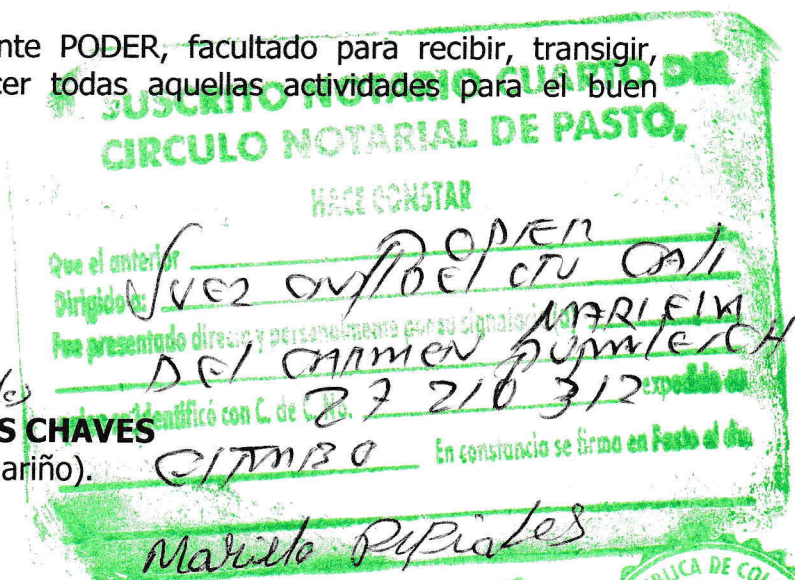 nte PODER, facultado para recibir, transigir,
cer todas aquellas actividades para el buen
SUSCRITO NOTARIO CUARTO DEL
CIRCULO NOTARIAL DE PASTO,
HACE CONSTAR
Que el anterior PODER
Dirigido a: JUEZ CIVIL DEL CTO CALI
Fue presentado directa y personalmente por su signatario MARIELA
DEL CARMEN
quien se identificó con C. de C. No. 27 210 312 expedida en
S CHAVES
ariño).
EL TAMBO En constancia se firma en Pasto al día
Mariela Pipiales
REPUBLICA DE COL